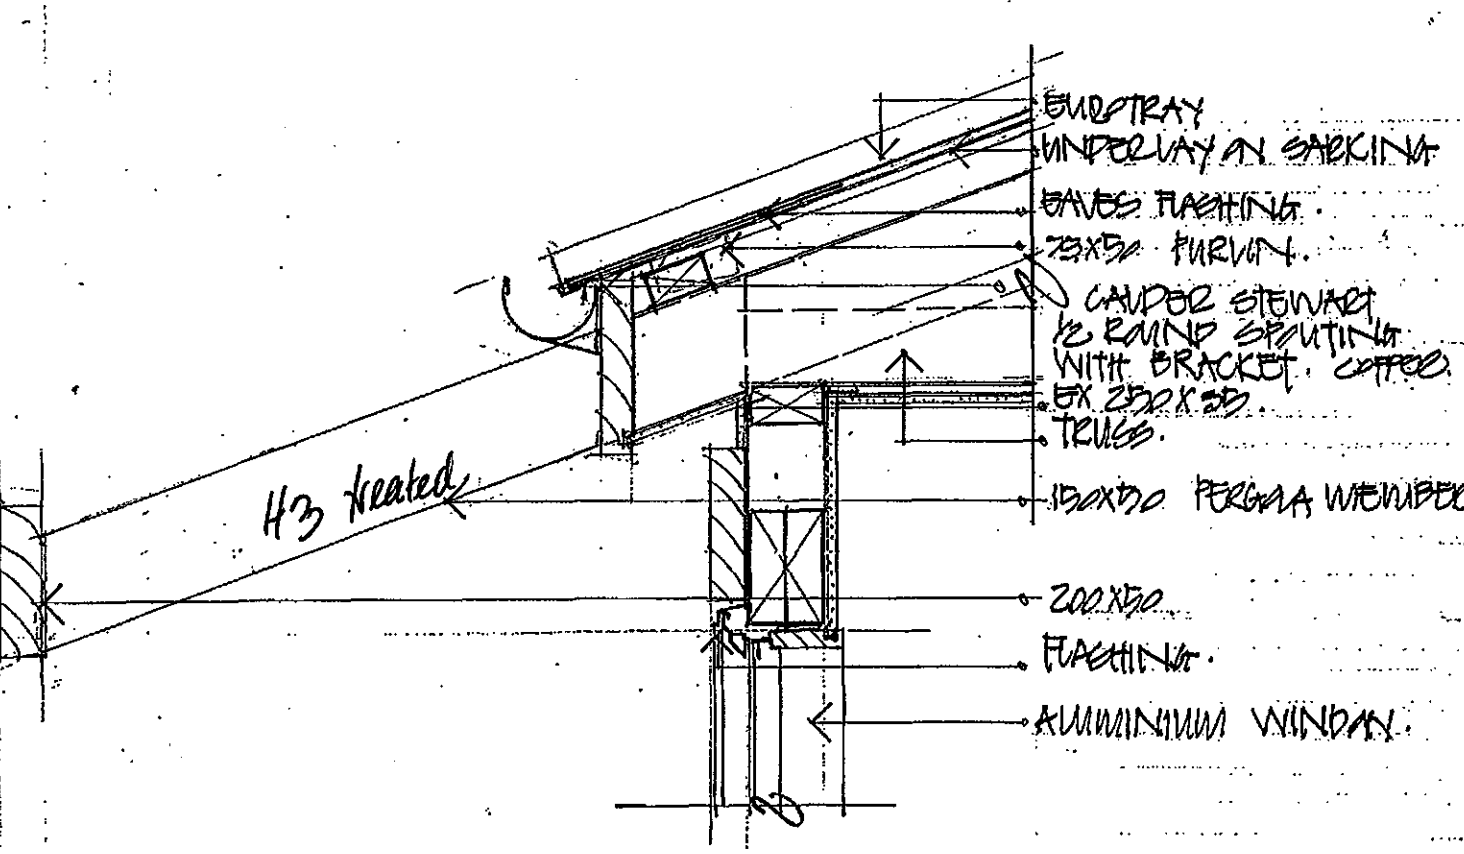 EUROTRAY
UNDERLAY ON SARKING
EAVES FLASHING.
75X50 PURLIN.
CALDER STEWART
1/2 ROUND SPOUTING
WITH BRACKET. COPPER.
EX 250X35.
TRUSS.
H3 treated
150X50 PERGOLA MEMBER
200X50
FLASHING.
ALUMINIUM WINDOW.